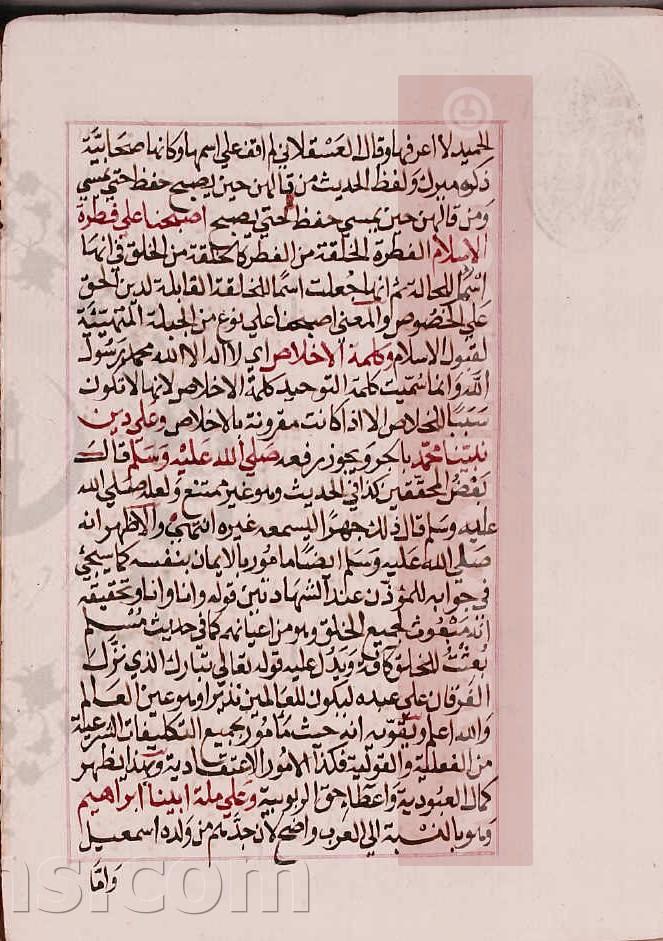 الحميد لا اعرفها وقال العسقلاني لم اقف علي اسمها وكانها صحابية
ذكره ميرك ولفظ الحديث من قالهن حين يصبح حفظ حتي يمسي
ومن قالهن حين يمسي حفظ حتي يصبح اصبحنا علي فطرة
الاسلام الفطرة الخلقة من الفطر كالخلقة من الخلق في انها
اسم للحالة ثم انها جعلت اسما للخلقة القابلة لدين الحق
علي الخصوص والمعني اصبحنا علي نوع من الجبلة المتهيئة
لقبول الاسلام وكلمة الاخلاص اي لا اله الا الله محمد رسول
الله وانما سميت كلمة التوحيد كلمة الاخلاص لانها لا تكون
سببا للخلاص الا اذا كانت مقرونة بالاخلاص وعلي دين
نبينا محمد بالجر ويجوز رفعه صلي الله عليه وسلم قال
بعض المحققين كذا في الحديث وهو غير ممتنع ولعله صلي الله
عليه وسلم قال ذلك جهرا ليسمعه غيره انتهي والاظهر انه
صلي الله عليه وسلم ايضا مامور بالايمان بنفسه كما سيجئ
في جوابه للمؤذن عند الشهادتين قوله وانا وانا وتحقيقه
انه مبعوث لجميع الخلق وهو من اعيانهم كما في حديث مسلم
بعثت للخلق كافة ويدل عليه قوله تعالي تبارك الذي نزل
الفرقان علي عبده ليكون للعالمين نذيرا وهو عين العالم
والله اعلم ويقويه انه حيث مامور بجميع التكليفات الشرعية
من الفعلية والقولية فكذا الامور الاعتقادية وبهذا يظهر
كمال العبودية واعطاء حق الربوبية وعلي ملة ابينا ابراهيم
وهو بالنسبة الي العرب واضح لان جدهم من ولده اسمعيل
واما
ns.com